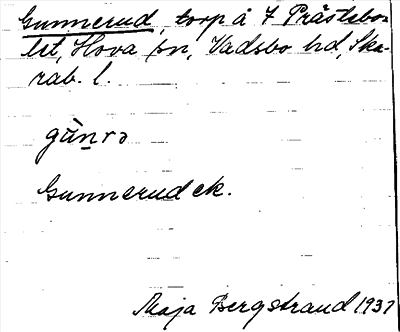 Gunnerud, torp å 7 Prästebo-
let, Hova sn, Vadsbo hd, Ska-
rab. l.
gùn̲rə
Gunnerud ek.
Maja Bergstrand 1937